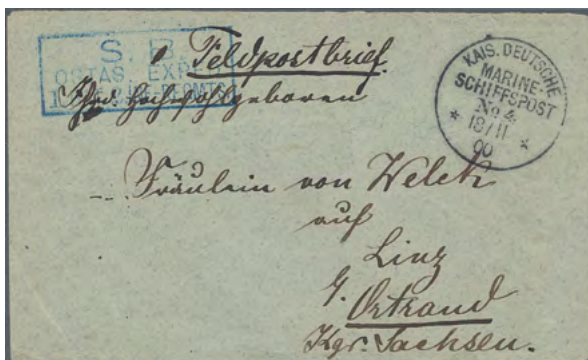 S. B.
OSTAS. EXPED.
Feldpostbrief.
Ihro Hochwohlgeboren
KAIS. DEUTSCHE
MARINE-
SCHIFFSPOST
No 4
* 18/11 *
00
Fräulein von Welck
auf
Linz
Ortrand
Kgr. Sachsen.